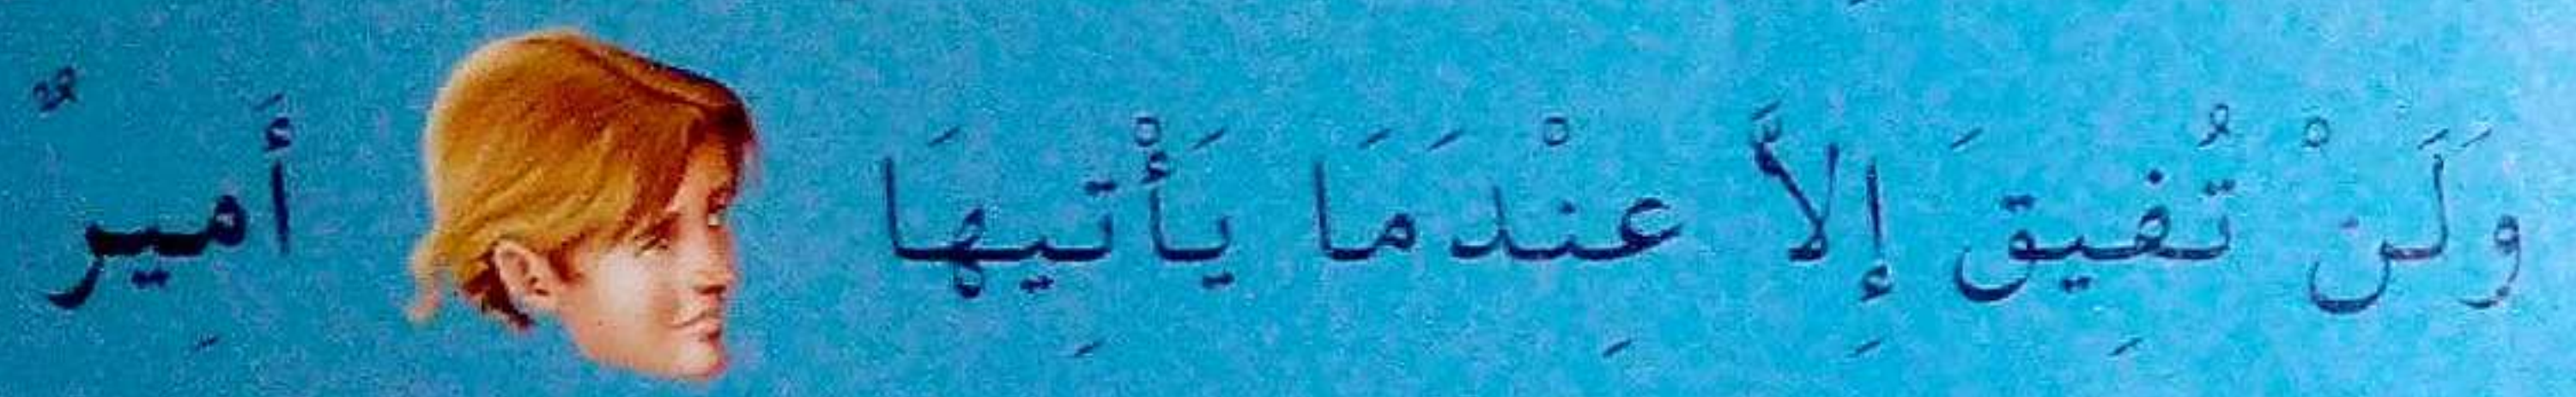 وَلَنْ تُفِيقَ إِلاَّ عِنْدَمَا يَأْتِيهَا أَمِيرٌ